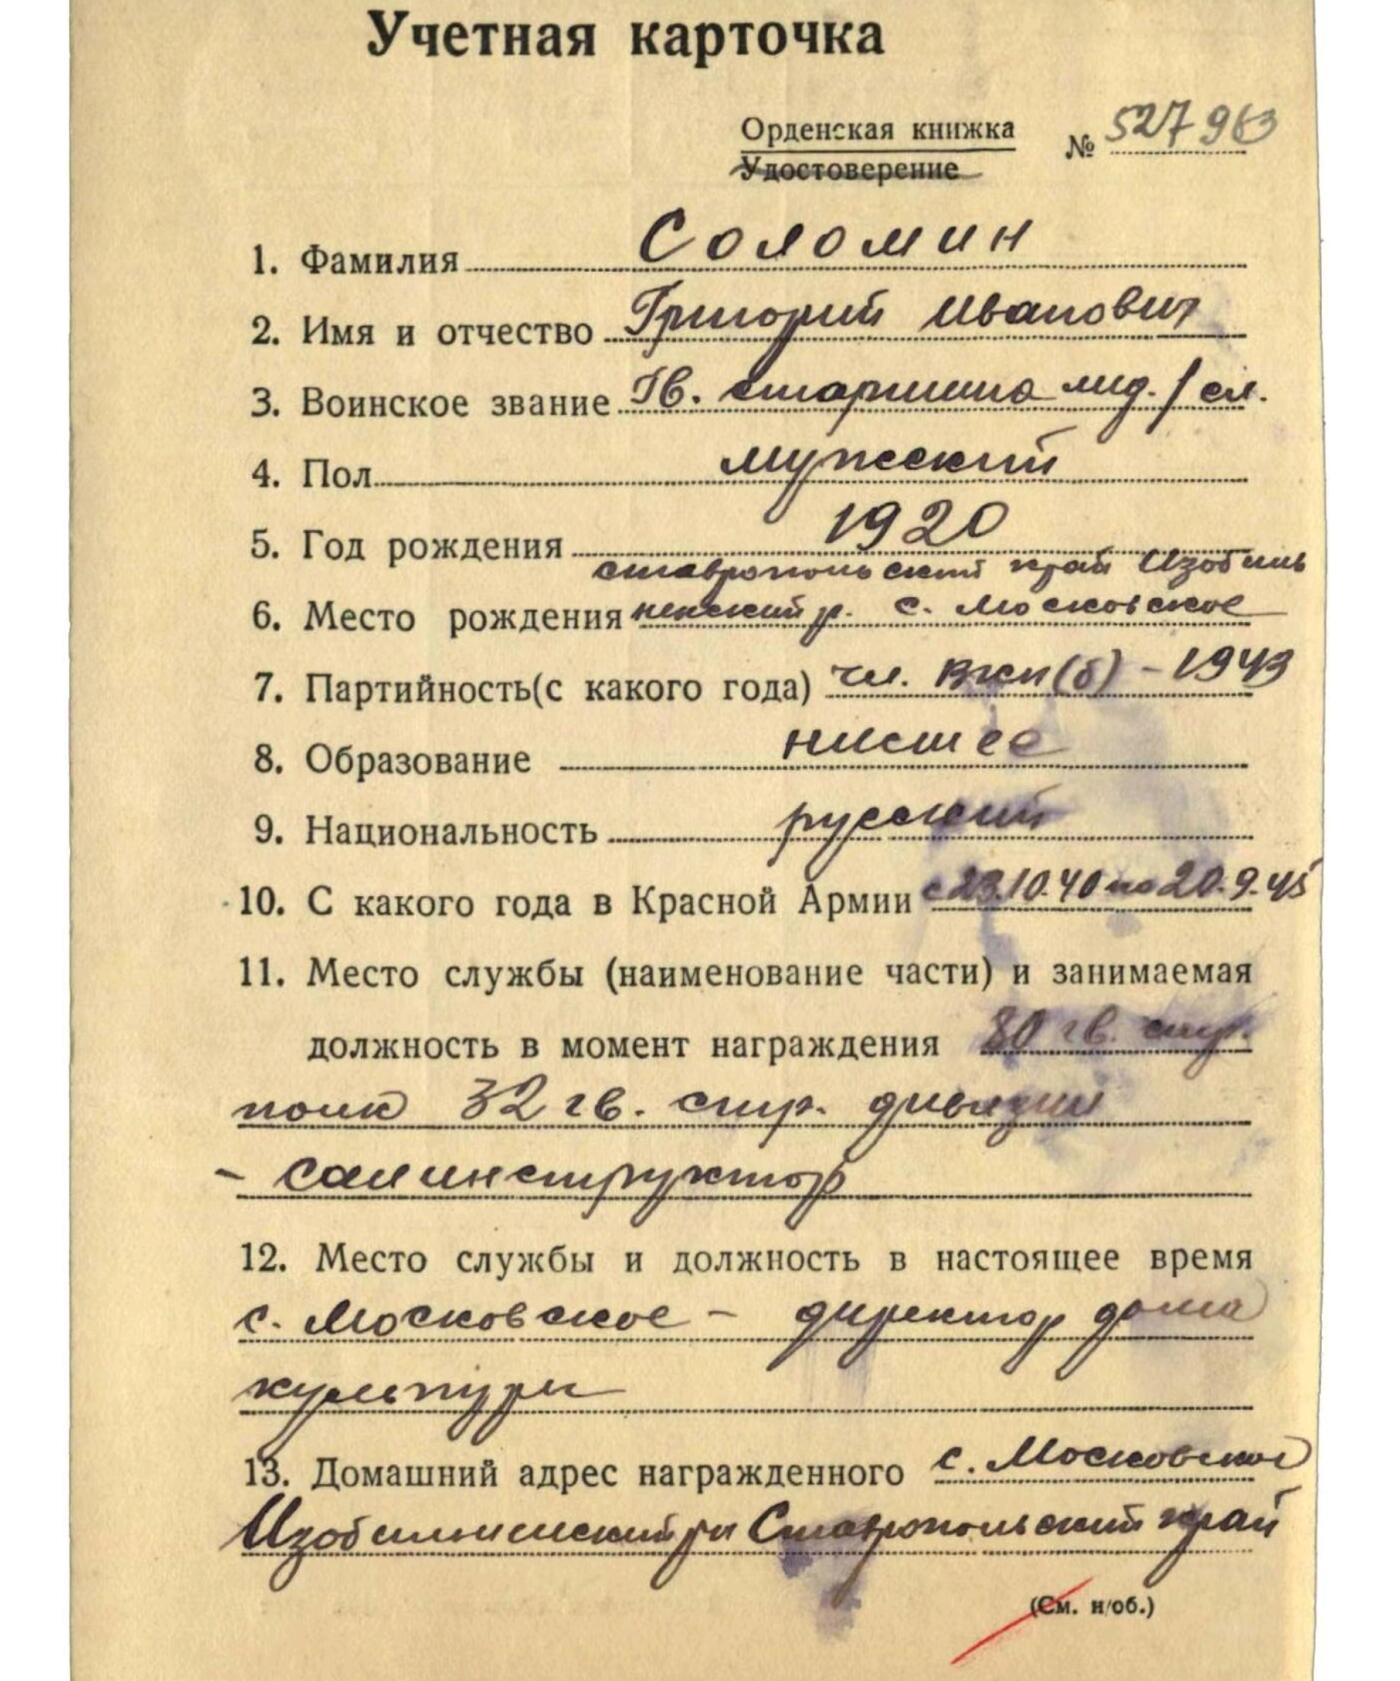 Учетная карточка
Орденская книжка
Удостоверение
№ 527963
1. Фамилия Соломин
2. Имя и отчество Григорий Иванович
3. Воинское звание Гв. старшина мид./сл.
4. Пол мужский
5. Год рождения 1920
ставропольский край Изобиль
6. Место рождения ненский р. с. Московское
7. Партийность(с какого года) чл. ВКП(б) - 1943
8. Образование нисшее
9. Национальность русский
10. С какого года в Красной Армии с 23.10.40 по 20.9.45
11. Место службы (наименование части) и занимаемая
должность в момент награждения 80 гв. стр.
полк 32 гв. стр. дивизии
- санинструктор
12. Место службы и должность в настоящее время
с. Московское - директор дома
культуры
13. Домашний адрес награжденного с. Московское
Изобилненский р-н Ставропольский край
(См. н/об.)